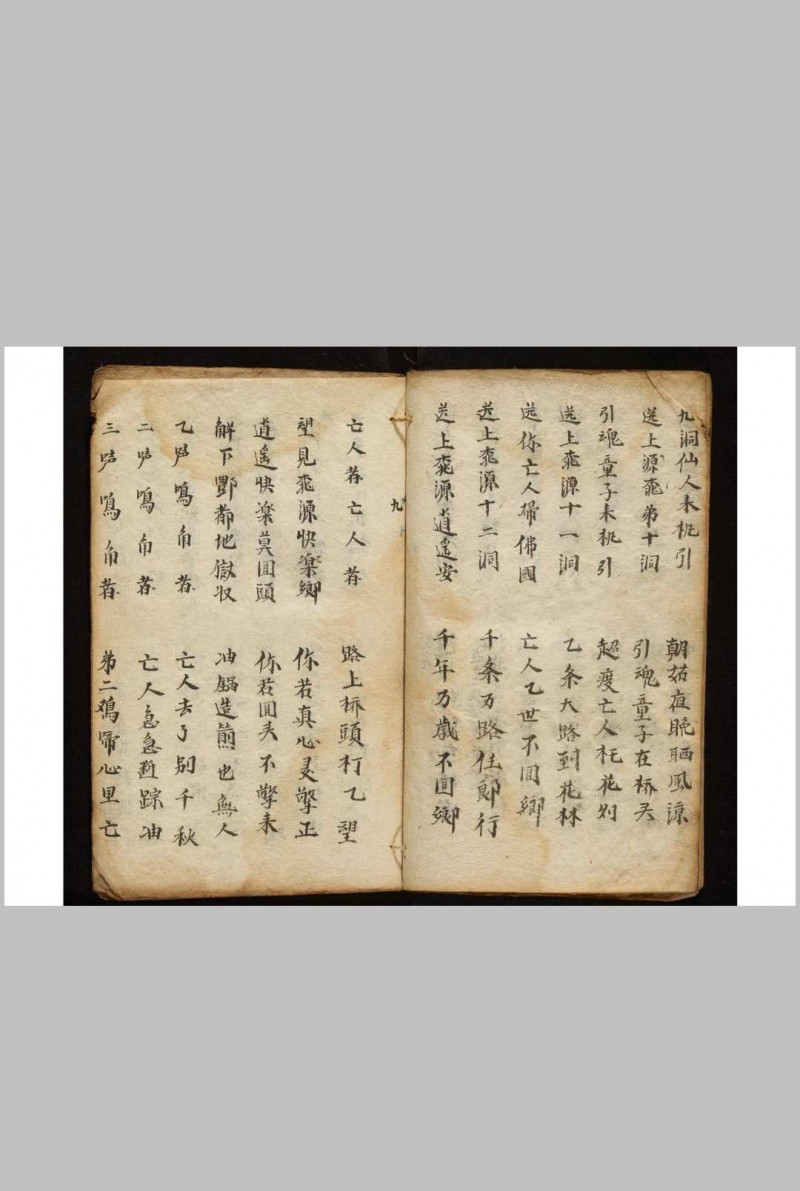 九洞仙人来桃引 朝姑夜晚晒風涼
送上源桃弟十洞 引魂童子在桥头
引魂童子来桃引 超度亡人托花刘
送上桃源十一洞 乙条大路到花林
送你亡人歸佛國 亡人乙世不囬鄉
送上桃源十二洞 千条万路任郎行
送上桃源逍遥安 千年万歲不囬鄉
九
亡人若亡人若 路上桥頭打乙望
望見桃源快楽鄉 你若真心灵擎正
逍遥快楽莫囬頭 你若囬头不擎来
觧下酆都地獄収 油鍋造煎也無人
乙声鳴角者 亡人去了别千秋
二声鳴角者 亡人急急踪油
三声鳴角者 弟二鳴啼心里亡